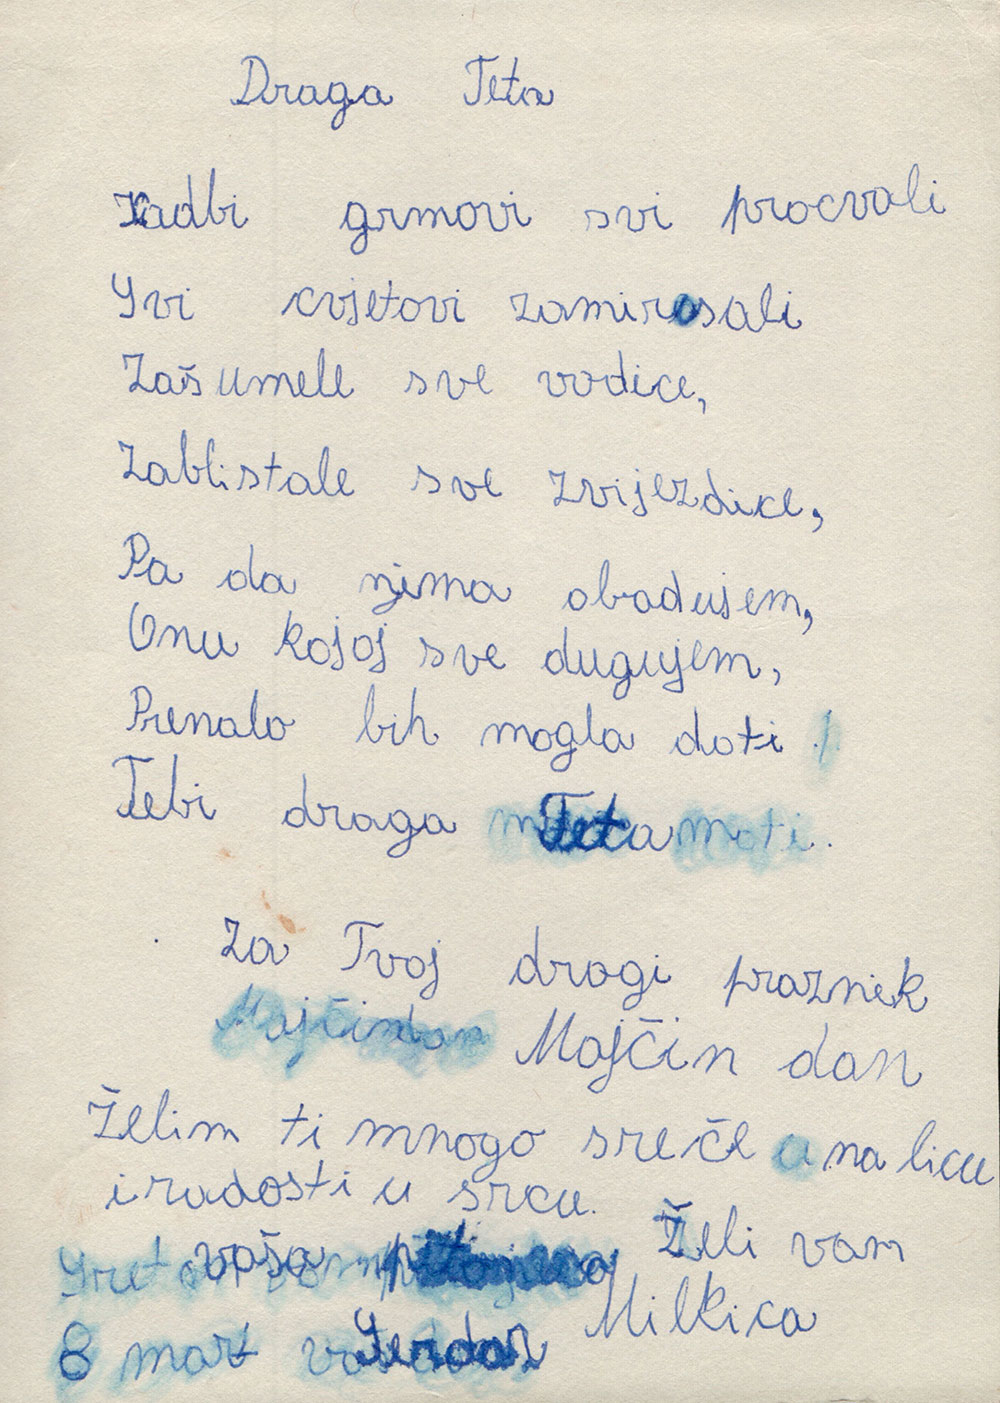 Draga Teta
Kadbi grmovi svi procvali
Svi cvjetovi zamirosali
Zašumele sve vodice,
Zablistale sve zvijezdice,
Pa da njima obadujem,
Onu kojoj sve dugujem,
Prenalo bih mogla doti!
Tebi draga Teta moti.
Za Tvoj drogi praznik
Majčindan Mojčin dan
Želim ti mnogo sreče u na licu
i radosti u srcu.
vaša pitomica Želi vam
Milkica
8 mart